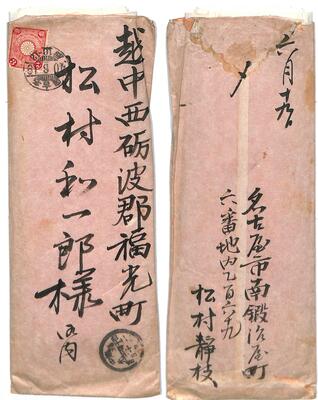 越中西砺波郡福光町
松村和一郎様
六月十九
〆
名古屋市南鍛治屋町
六番地内乙百六十九
松村静枝